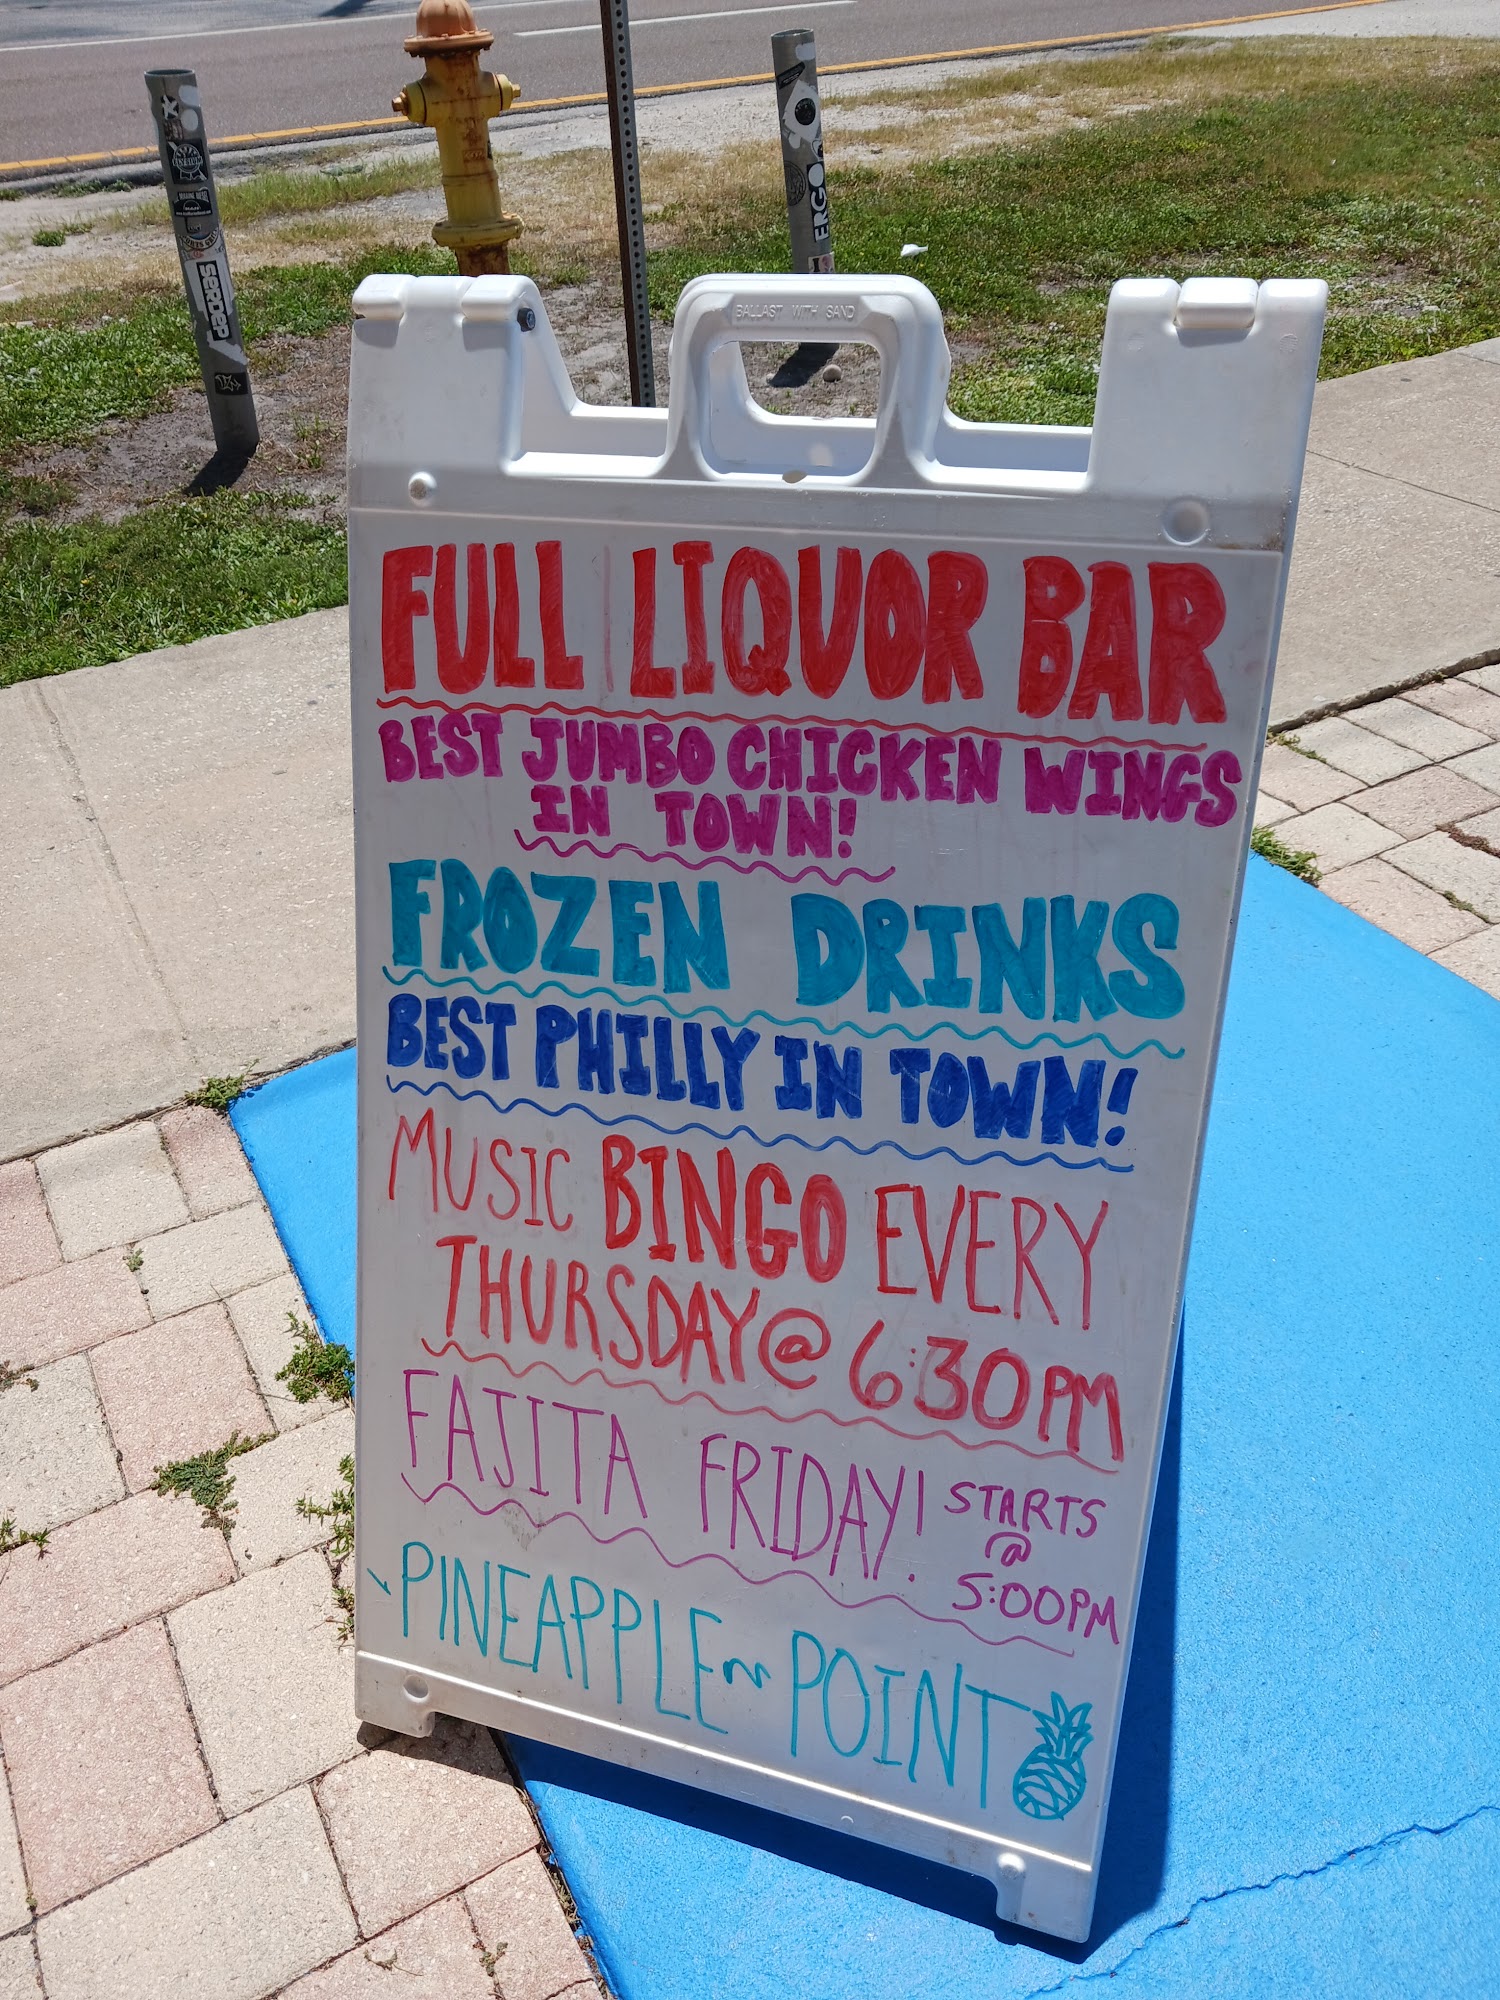 BALLAST WITH SAND
FULL LIQUOR BAR
BEST JUMBO CHICKEN WINGS
IN TOWN!
FROZEN DRINKS
BEST PHILLY IN TOWN!
MUSIC BINGO EVERY
THURSDAY @ 6:30PM
FAJITA FRIDAY! STARTS
@
5:00PM
PINEAPPLE POINT
SERDEP
ERGO